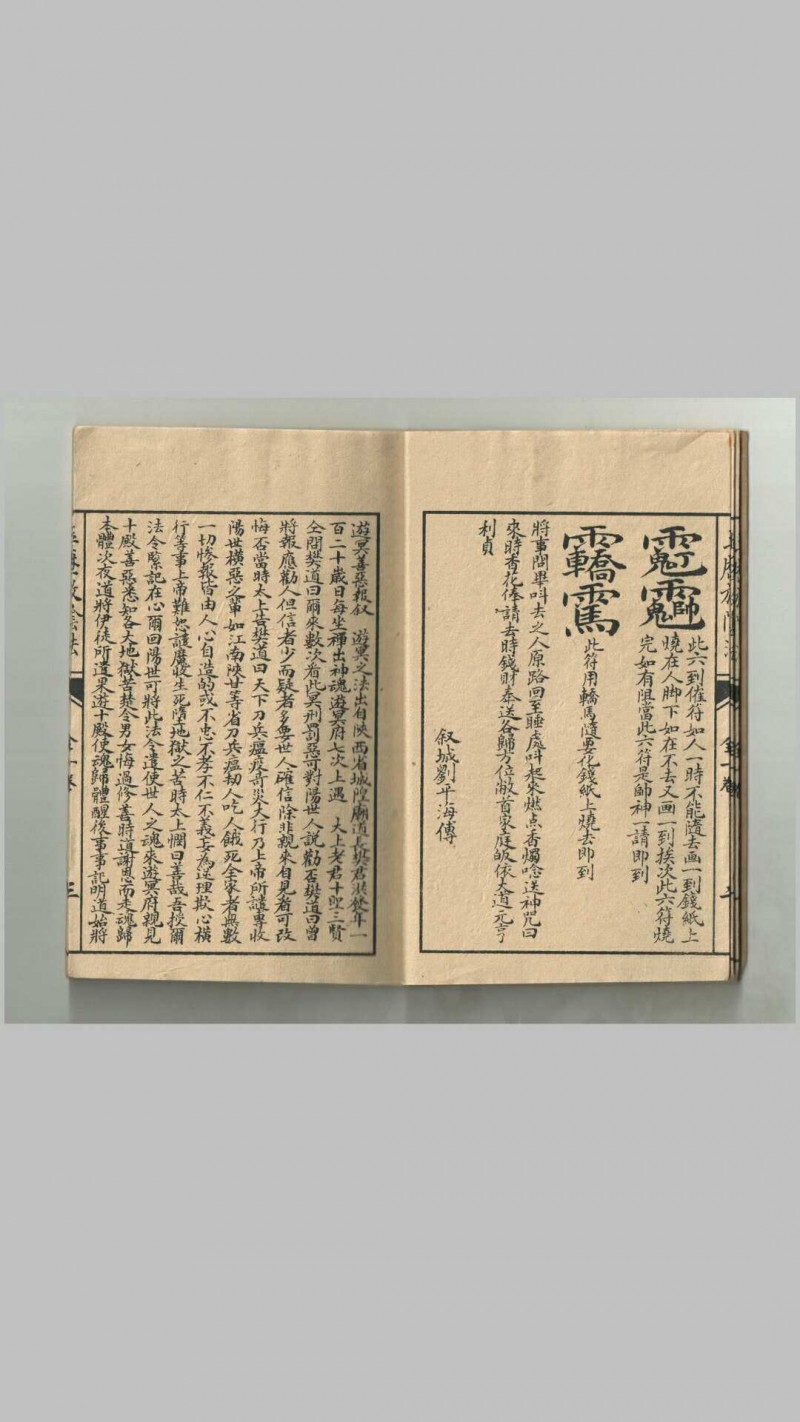 此六到催符如人一時不能隨去画一到錢紙上
燒在人脚下如在不去又画一到挨次此六符燒
完如有阻當此六符是師神一請即到
此符用轎馬隨要化錢紙上燒去即到
將事問畢呌去之人原路回至睡處呌起來燃点香燭唸送神咒曰
來時香花俸請去時錢财泰送各歸方位敝首家庭皈依大道元亨
利貞
叙城劉平海傳
遊冥善惡報叙 遊冥之法出自陝西省城隍廟道長樊君
年一
百二十歲日每坐禅出神魂遊冥府七次上遇 大上老君十聖三賢
仝問樊道曰爾來數次看此冥刑罰惡可對陽世人説勸否樊道曰曾
將報應勸人但信者少而疑者多要世人確信除非親來自見者可改
悔否當時太上告樊道曰天下刀兵瘟疫奇災大行乃上帝所譴專收
陽世橫惡之輩如江南陝甘等省刀兵瘟刼人吃人餓死全家者無數
一切慘報皆由人心自造的或不忠不孝不仁不義妄為逆理欺心橫
行等事上帝難恕譴魔收生死墮地獄之苦時太上憫曰善哉吾授爾
法令緊記在心爾回陽世可將此法令遣使世人之魂來遊冥府親見
十殿善惡悉知各大地獄苦楚令男女悔過修善時道謝恩而走魂歸
本體次夜道將伊徒所遣果遊十殿使魂歸體醒後事事記明道始將
三